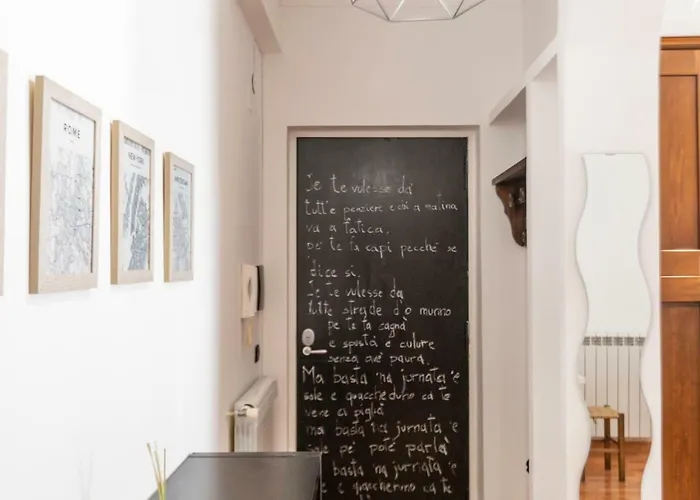 ROME
NEW YORK
AMSTERDAM
Je te vulesse da'
tutt'e penziere e chi a matina
va a fatica,
pe' te fa capi pecchè se
dice si.
Je te vulesse da
tutte strade d'o munno
pe te fa cagnà
e sposta e culure
senza avé paura.
Ma basta 'na jurnata 'e
sole e quaccheduno ca te
vene a piglià
ma basta na jurnata 'e
sole pe' poté parlà
basta 'na jurnata 'e
e quaccheruno ca te